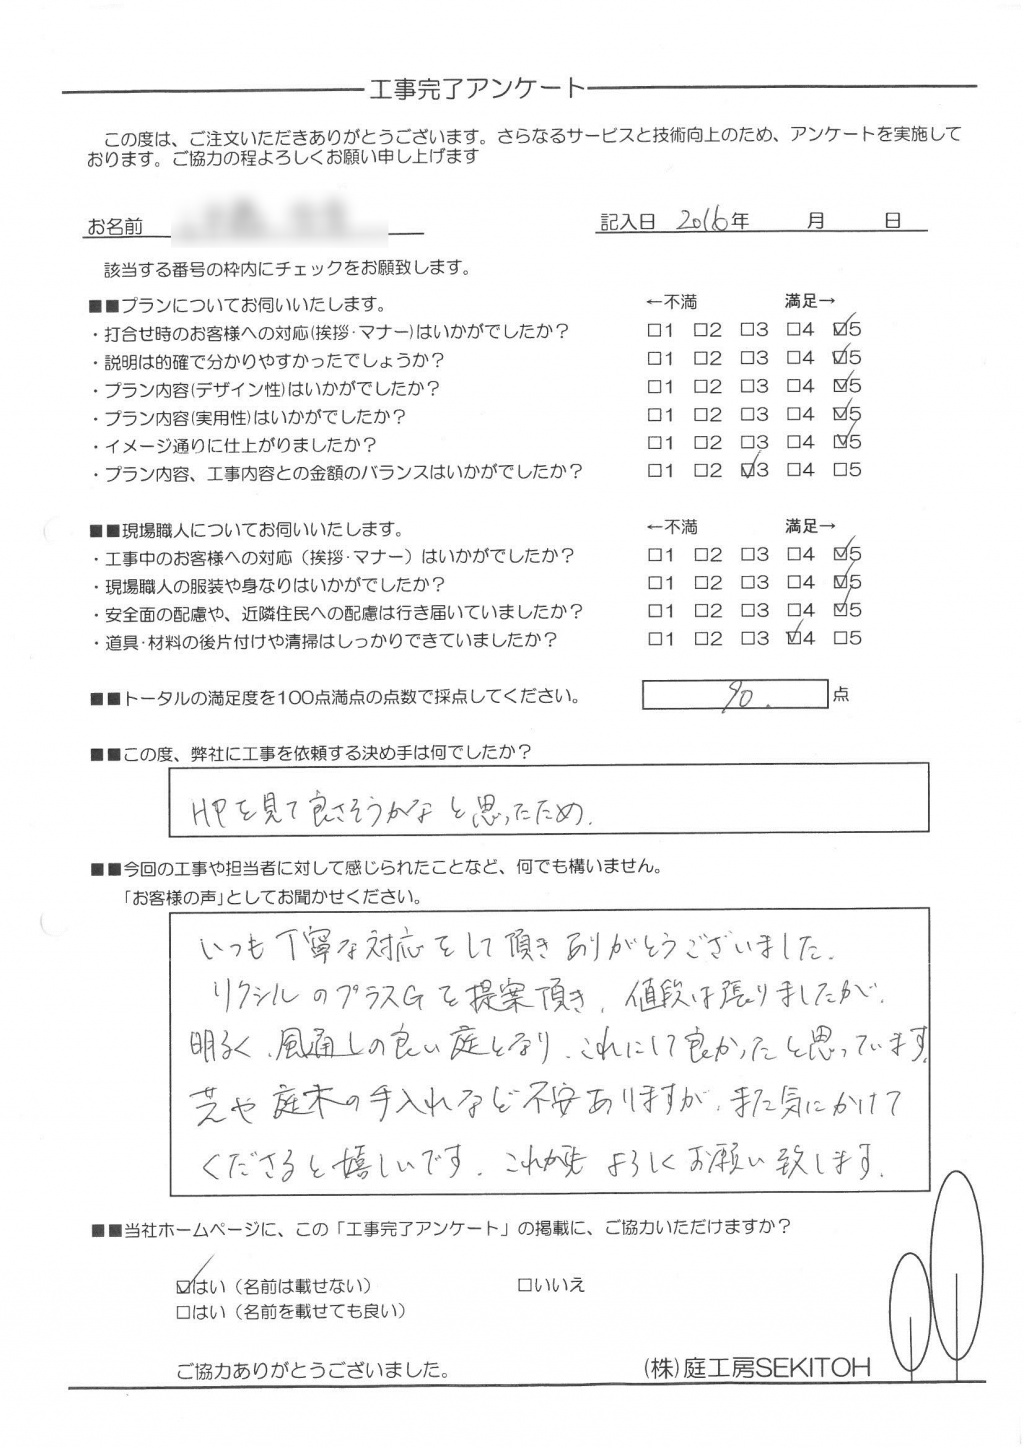 工事完了アンケート
この度は、ご注文いただきありがとうございます。さらなるサービスと技術向上のため、アンケートを実施して
おります。ご協力の程よろしくお願い申し上げます
お名前 記入日 2016年 月 日
該当する番号の枠内にチェックをお願致します。
■■プランについてお伺いいたします。 ←不満 満足→
・打合せ時のお客様への対応(挨拶･マナー)はいかがでしたか? □1 □2 □3 □4 ☑5
・説明は的確で分かりやすかったでしょうか? □1 □2 □3 □4 ☑5
・プラン内容(デザイン性)はいかがでしたか? □1 □2 □3 □4 ☑5
・プラン内容(実用性)はいかがでしたか? □1 □2 □3 □4 ☑5
・イメージ通りに仕上がりましたか? □1 □2 □3 □4 ☑5
・プラン内容、工事内容との金額のバランスはいかがでしたか? □1 □2 ☑3 □4 □5
■■現場職人についてお伺いいたします。 ←不満 満足→
・工事中のお客様への対応（挨拶･マナー）はいかがでしたか? □1 □2 □3 □4 ☑5
・現場職人の服装や身なりはいかがでしたか? □1 □2 □3 □4 ☑5
・安全面の配慮や、近隣住民への配慮は行き届いていましたか? □1 □2 □3 □4 ☑5
・道具･材料の後片付けや清掃はしっかりできていましたか? □1 □2 □3 ☑4 □5
■■トータルの満足度を100点満点の点数で採点してください。 90. 点
■■この度、弊社に工事を依頼する決め手は何でしたか?
HPを見て良さそうかなと思ったため.
■■今回の工事や担当者に対して感じられたことなど、何でも構いません。
「お客様の声」としてお聞かせください。
いつも丁寧な対応をして頂きありがとうございました.
リクシルのプラスGを提案頂き、値段は張りましたが、
明るく、風通しの良い庭となり、これにして良かったと思っています.
芝や庭木の手入れなど不安ありますが、また気にかけて
くださると嬉しいです. これからも よろしくお願い致します.
■■当社ホームページに、この「工事完了アンケート」の掲載に、ご協力いただけますか?
☑はい（名前は載せない） □いいえ
□はい（名前を載せても良い）
ご協力ありがとうございました。 (株)庭工房SEKITOH